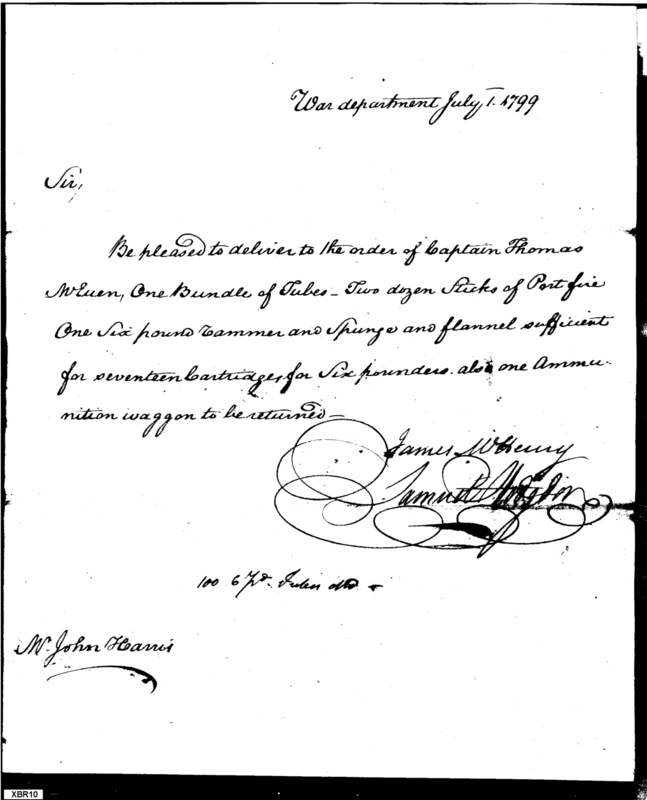 War department July 1. 1799
Sir,
Be pleased to deliver to the order of Captain Thomas
McEuen, One Bundle of Tubes – Two dozen Sticks of Port fire
One Six pound Rammer and Spunge and flannel sufficient
for seventeen Cartridges for Six pounders. also one Ammu-
nition waggon to be returned –
James McHenry
Samuel Hodgdon
100 6 Pd. Tubes
Mr. John Harris
XBR10